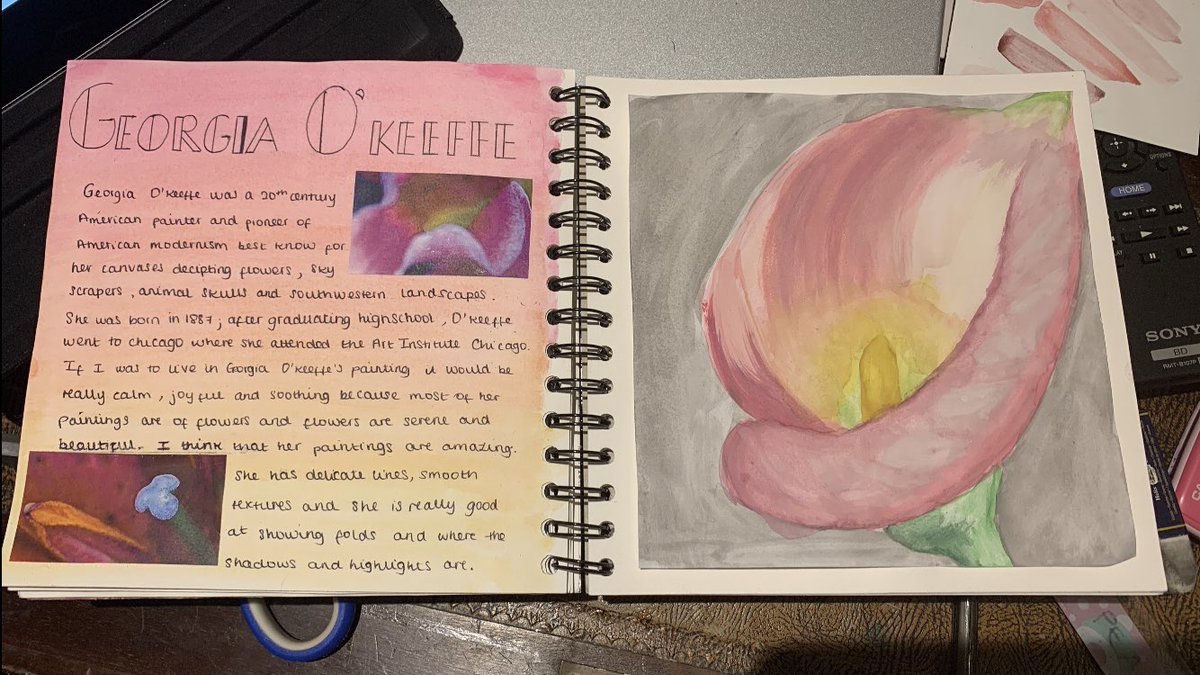 GEORGIA O'KEEFFE
Georgia O'Keeffe was a 20th century
American painter and pioneer of
American modernism best know for
her canvases decipting flowers, sky
scrapers, animal skulls and southwestern landscapes.
She was born in 1887; after graduating highschool, O'Keeffe
went to chicago where she attended the Art Institute Chicago.
If I was to live in Georgia O'Keeffe's painting it would be
really calm, joyful and soothing because most of her
paintings are of flowers and flowers are serene and
beautiful. I think that her paintings are amazing.
She has delicate lines, smooth
textures and she is really good
at showing folds and where the
shadows and highlights are.
OPTIONS
HOME
SONY
BD